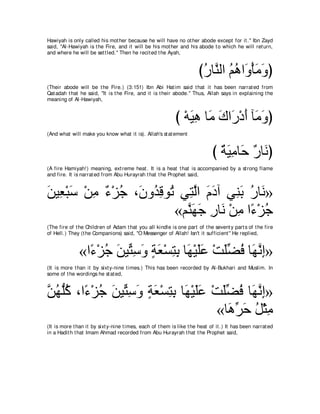 Hawiyah is only called his mother because he will have no other abode except for it." Ibn Zayd
said, "Al-Hawiyah is the Fire, and it will be his mother and his abode to which he will return,
and where he will be settled." Then he recited the Ayah,
(وَمَأْوَاهُمُ النَّارُ)
(Their abode will be the Fire.) (3:151) Ibn Abi Hatim said that it has been narrated from
Qatadah that he said, "It is the Fire, and it is their abode." Thus, Allah says in explaining the
meaning of Al-Hawiyah,
(وَمَآ أَدْرَاكَ مَا هِيَهْ )
(And what will make you know what it is). Allah's statement
(نَارٌ حَامِيَةٌ )
(A fire Hamiyah!) meaning, extreme heat. It is a heat that is accompanied by a strong flame
and fire. It is narrated from Abu Hurayrah that the Prophet said,
«نَارُ بَنِي آدَمَ الَّتِي تُوقِدُونَ، جُزْءٌ مِنْ سَبْعِينَ
جُزْءًا مِنْ نَارِ جَهَنَّمَ»
(The fire of the Children of Adam that you all kindle is one part of the seventy parts of the fire
of Hell.) They (the Companions) said, "O Messenger of Allah! Isn't it sufficient" He replied,
«إِنَّهَا فُضِّلَتْ عَلَيْهَا بِتِسْعَةٍ وَسِتِّينَ جُزْءًا»
(It is more than it by sixty-nine times.) This has been recorded by Al-Bukhari and Muslim. In
some of the wordings he stated,
«إِنَّهَا فُضِّلَتْ عَلَيْهَا بِتِسْعَةٍ وَسِتِّينَ جُزْءًا، كُلُّهُنَّ
مِثْلُ حَرِّهَا»
(It is more than it by sixty-nine times, each of them is like the heat of it.) It has been narrated
in a Hadith that Imam Ahmad recorded from Abu Hurayrah that the Prophet said,